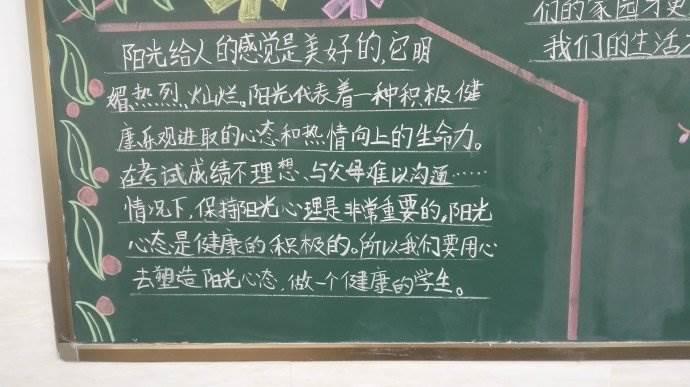 阳光给人的感觉是美好的,它明
媚,热烈,灿烂。阳光代表着一种积极健
康乐观进取的心态和热情向上的生命力。
在考试成绩不理想、与父母难以沟通……
情况下,保持阳光心理是非常重要的,阳光
心态是健康的积极的。所以我们要用心
去塑造阳光心态,做一个健康的学生。
们的家园才更
我们的生活